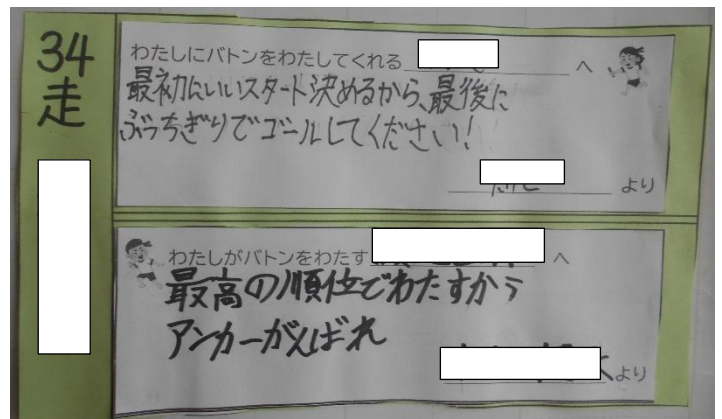 34
走
わたしにバトンをわたしてくれる へ
最初にいいスタート決めるから、最後に
ぶっちぎりでゴールしてください!
より
わたしがバトンをわたす へ
最高の順位でわたすから
アンカーがんばれ
より